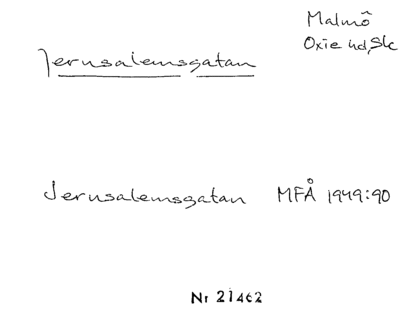 Malmö
Oxie hd, Sk
Jerusalemsgatan
Jerusalemsgatan MFÅ 1949:90
Nr 21462